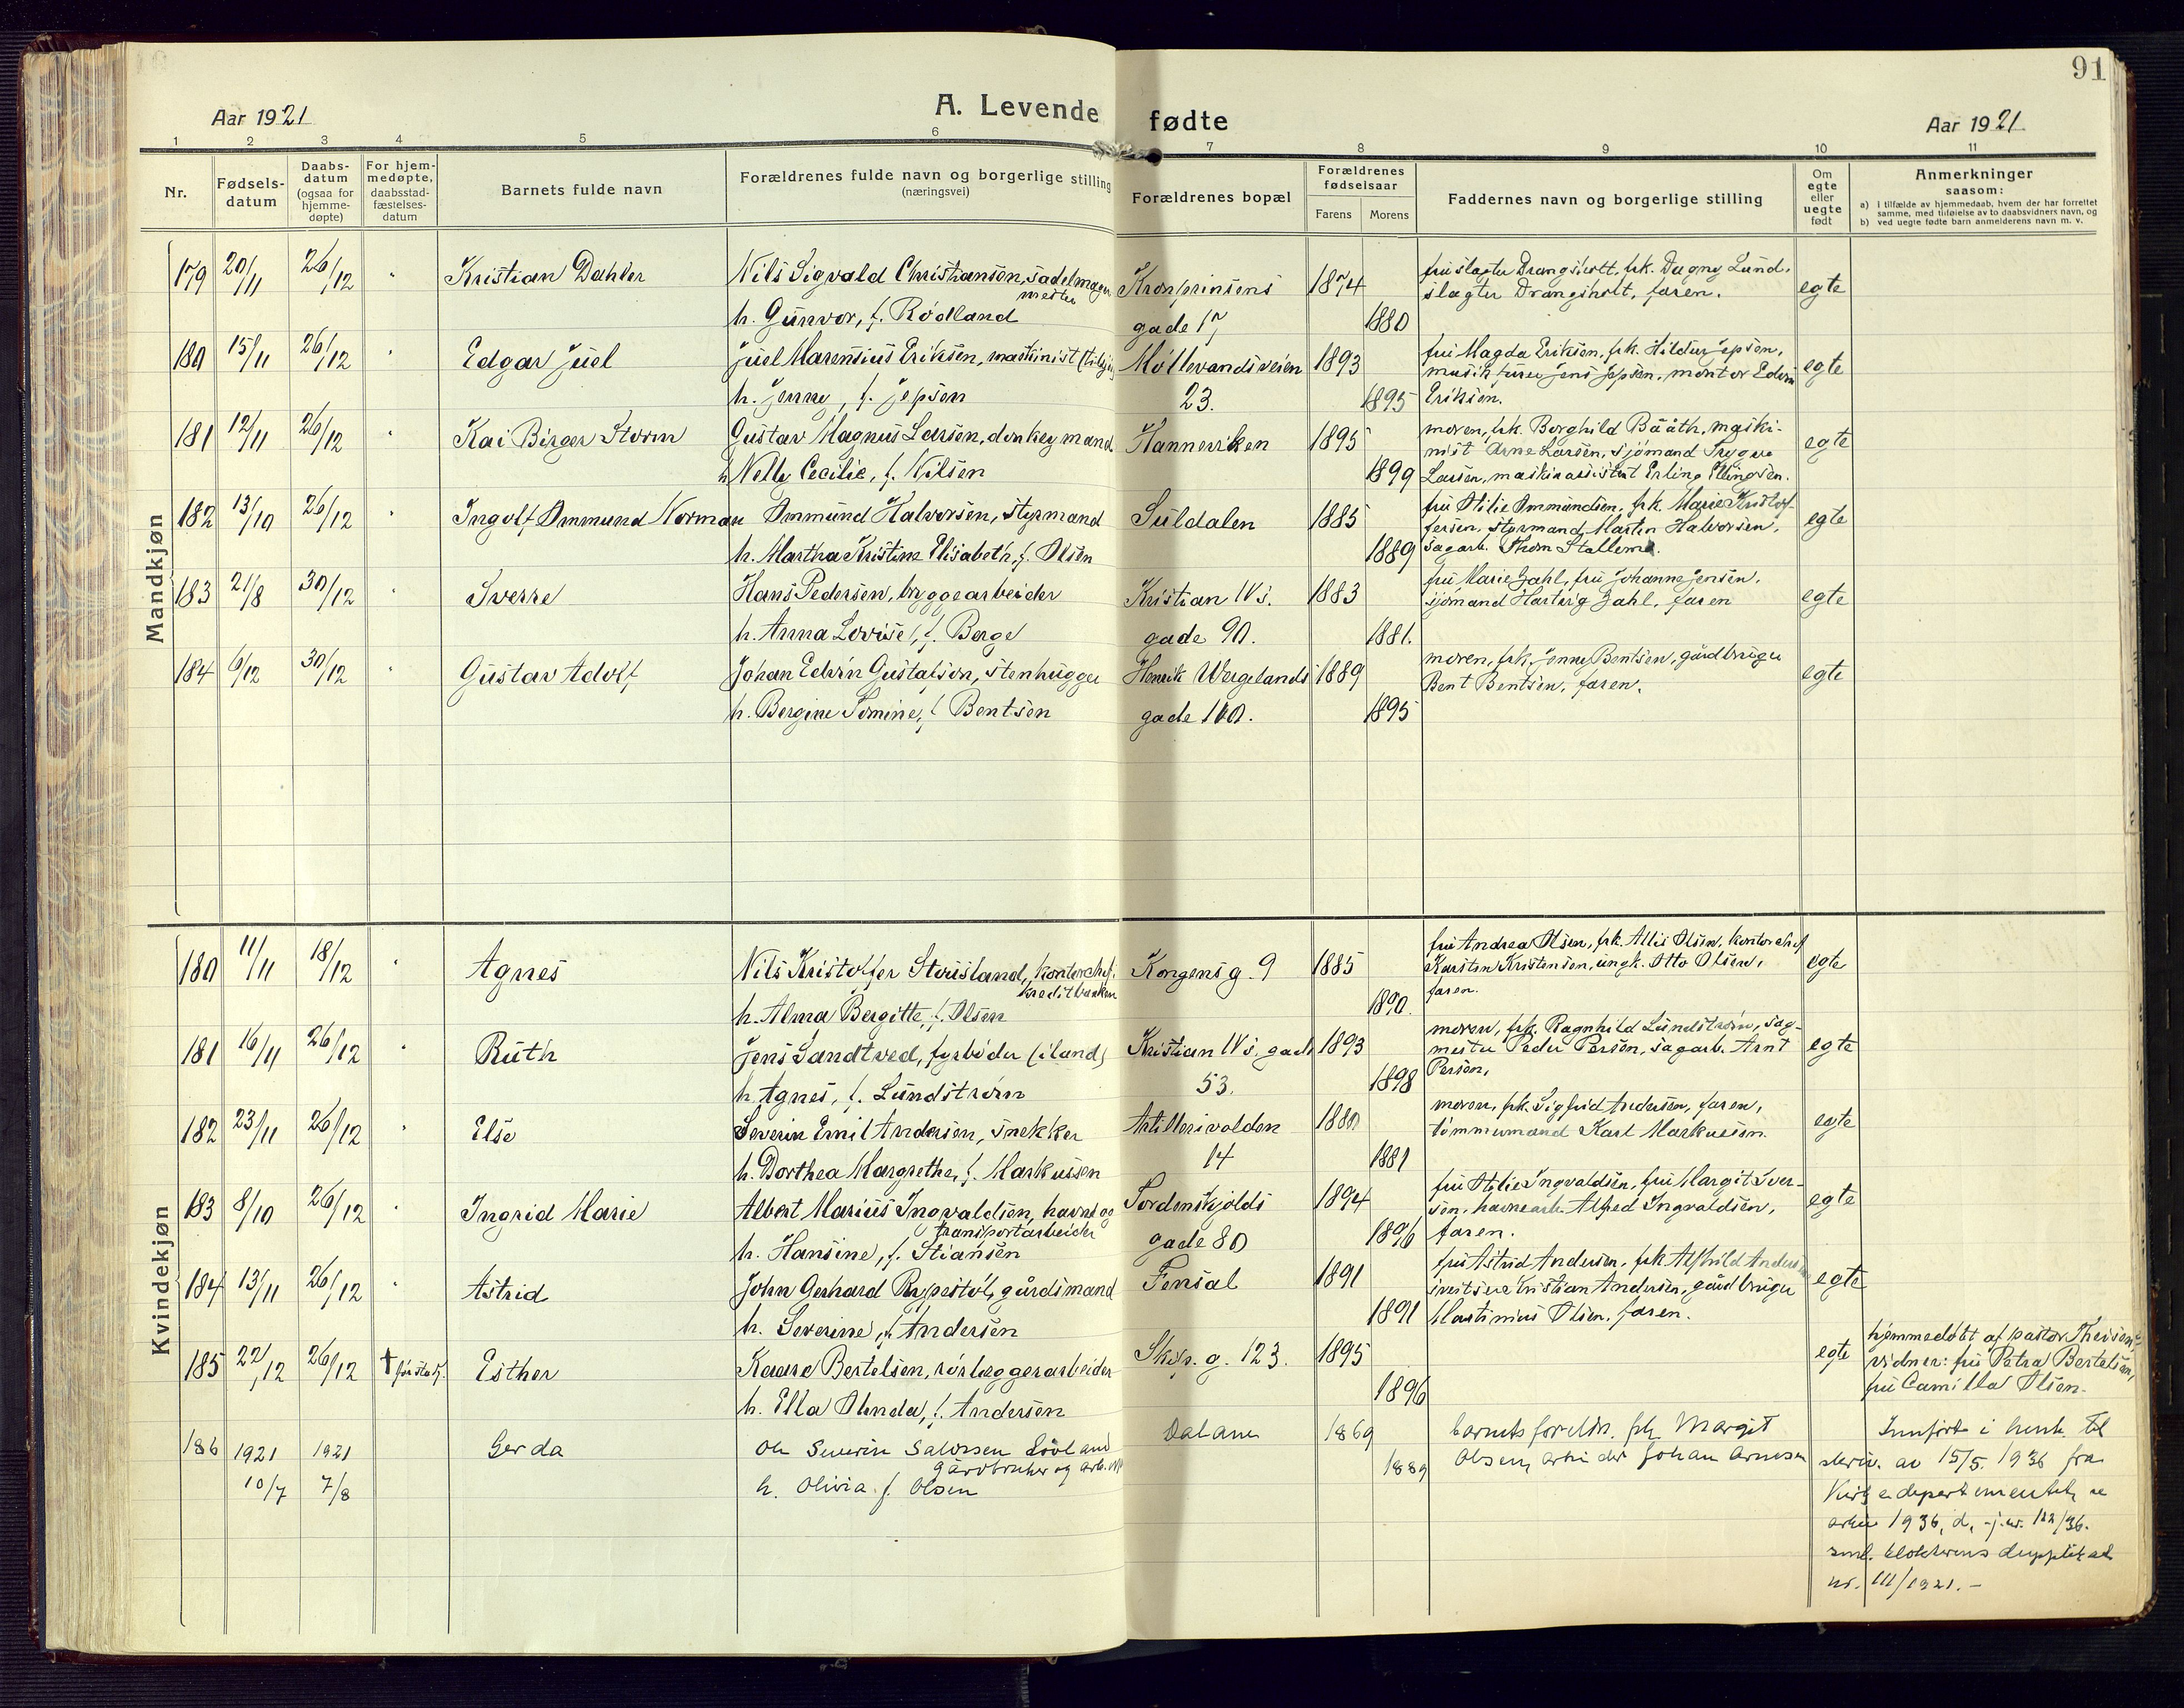 91
Aar 1921
A. Levende fødte
Aar 1921
1 2 3 4 5 6 7 8 9 10 11
Nr.
Fødsels-
datum
Daabs-
datum
(ogsaa for
hjemme-
døpte)
For hjem-
medøpte,
daabsstad-
fæstelses-
datum
Barnets fulde navn
Forældrenes fulde navn og borgerlige stilling
(næringsvei)
Forældrenes bopæl
Forældrenes
fødselsaar
Farens Morens
Faddernes navn og borgerlige stilling
Om
egte
eller
uegte
født
Anmerkninger
saasom:
a) i tilfælde av hjemmedaab, hvem der har forrettet
samme, med tilføielse av to daabsvidners navn, og
b) ved uegte fødte barn anmelderens navn m. v.
Mandkjøn
179 20/11 26/12 " Kristian Dahler Nils Sigvald Christiansen, sadelmager
mester
h. Gunvor, f. Rødland
Kronprinsens
gade 17
1874 1880
fru slagter Drangsholt, frk. Dagny Lund,
slagter Drangsholt, faren.
egte
180 15/11 26/12 " Edgar Juel Juel Marensius Eriksen, maskinist
h. Jenny, f. Jepsen
Møllevandsveien
23.
1893 1895
fru Magda Eriksen, frk. Hildur Jepsen,
musik Jens Jepsen, montør Edvin
Eriksen.
egte
181 12/11 26/12 " Kai Birger Storm Gustav Magnus Larsen, donkeymand
h Nelly Cecilie, f. Nilsen
Hanneviken
1895 1899
moren, frk. Borghild Bååth, maski-
nist Arne Larsen, sjömand Trygve
Larsen, maskinassistent Erling Ellingsen.
egte
182 13/10 26/12 " Ingolf Ommund Norman Ommund Halvorsen, styrmand
h. Martha Kristine Elisabeth, f. Olsen
Suldalen
1885 1889
fru Otilie Ommundsen, frk. Marie Kristof-
fersen, styrmand Martin Halvorsen,
sagarb. Thom Stallemo.
egte
183 21/8 30/12 " Sverre Hans Pedersen, bryggearbeider
h. Anna Lovise, f. Berge
Kristian IVs.
gade 90.
1883 1881.
fru Marie Zahl, fru Johanne Jensen,
sjömand Hartvig Zahl, faren
egte
184 6/12 30/12 " Gustav Adolf Johan Edvin Gustafson, stenhugger
h. Bergine Tomine, f. Bentsen
Henrik Wergelands
gade 100.
1889 1895
moren, frk. Jenny Bentsen, gårdbruger
Bent Bentsen, faren.
egte
Kvindekjøn
180 11/11 18/12 " Agnes Nils Kristoffer Stousland, kontorchef.
Kreditbanken
h. Alma Bergitte, f. Olsen
Kongensg. 9
1885 1890.
fru Andrea Olsen, frk. Allis Olsen, kontorchef
Karsten Kristensen, ungk. Otto Olsen,
faren.
egte
181 16/11 26/12 " Ruth Jens Sandtved, fyrbøder (iland)
h. Agnes, f. Lundstrøm
Kristian IVs. gade
53.
1893 1898
moren, frk. Ragnhild Lundstrøm, sag-
mester Peder Persen, sagarb. Arnt
Persen,
egte
182 23/11 26/12 " Else Severin Emil Andersen, snekker
h. Dorthea Margrethe, f. Markussen
Artillerivolden
14
1880 1881
moren, frk. Sigfrid Andersen, faren,
tømmermand Karl Markussen.
egte
183 8/10 26/12 " Ingrid Marie Albert Marius Ingvaldsen, havne og
transportarbeider
h. Hansine, f. Stiansen
Tordenskjolds
gade 80
1894 1896
fru Otilie Ingvaldsen, fru Margit Iver-
sen, havnearb. Alfred Ingvaldsen,
faren.
egte
184 13/11 26/12 " Astrid John Gerhard Rypestøl, gårdsmand
h. Severine, f. Andersen
Fensal
1891 1891
fru Astrid Andersen, frk Alfhild Anders
Kristian Andersen, gårdbruger
Martinius Olsen, faren.
egte
185 22/12 26/12 † før stadf. Esther Kaare Bertelsen, rørlæggerarbeider
h. Ella Olenda, f. Andersen
Skip. g. 123.
1895 1896
egte
hjemmedøbt af pastor Theisen,
vidner: fru Petra Bertelsen,
fru Camilla Olsen.
186 1921 1921 Gerda Ole Severin Salvesen Lövland
10/7 7/8
gårdbruker og arb.
h. Olivia f. Olsen
Dalane
1869 1889
barnets foreldr. frk Margit
Olsen, arbeider Johan Arnesen
Innført i henh. til
skriv. av 15/5. 1936 fra
Kirkedepartementet, se
arkiv 1936, d, - j. nr. 122/36.
sml. klokkerens dupplikat
nr. 111/1921. -